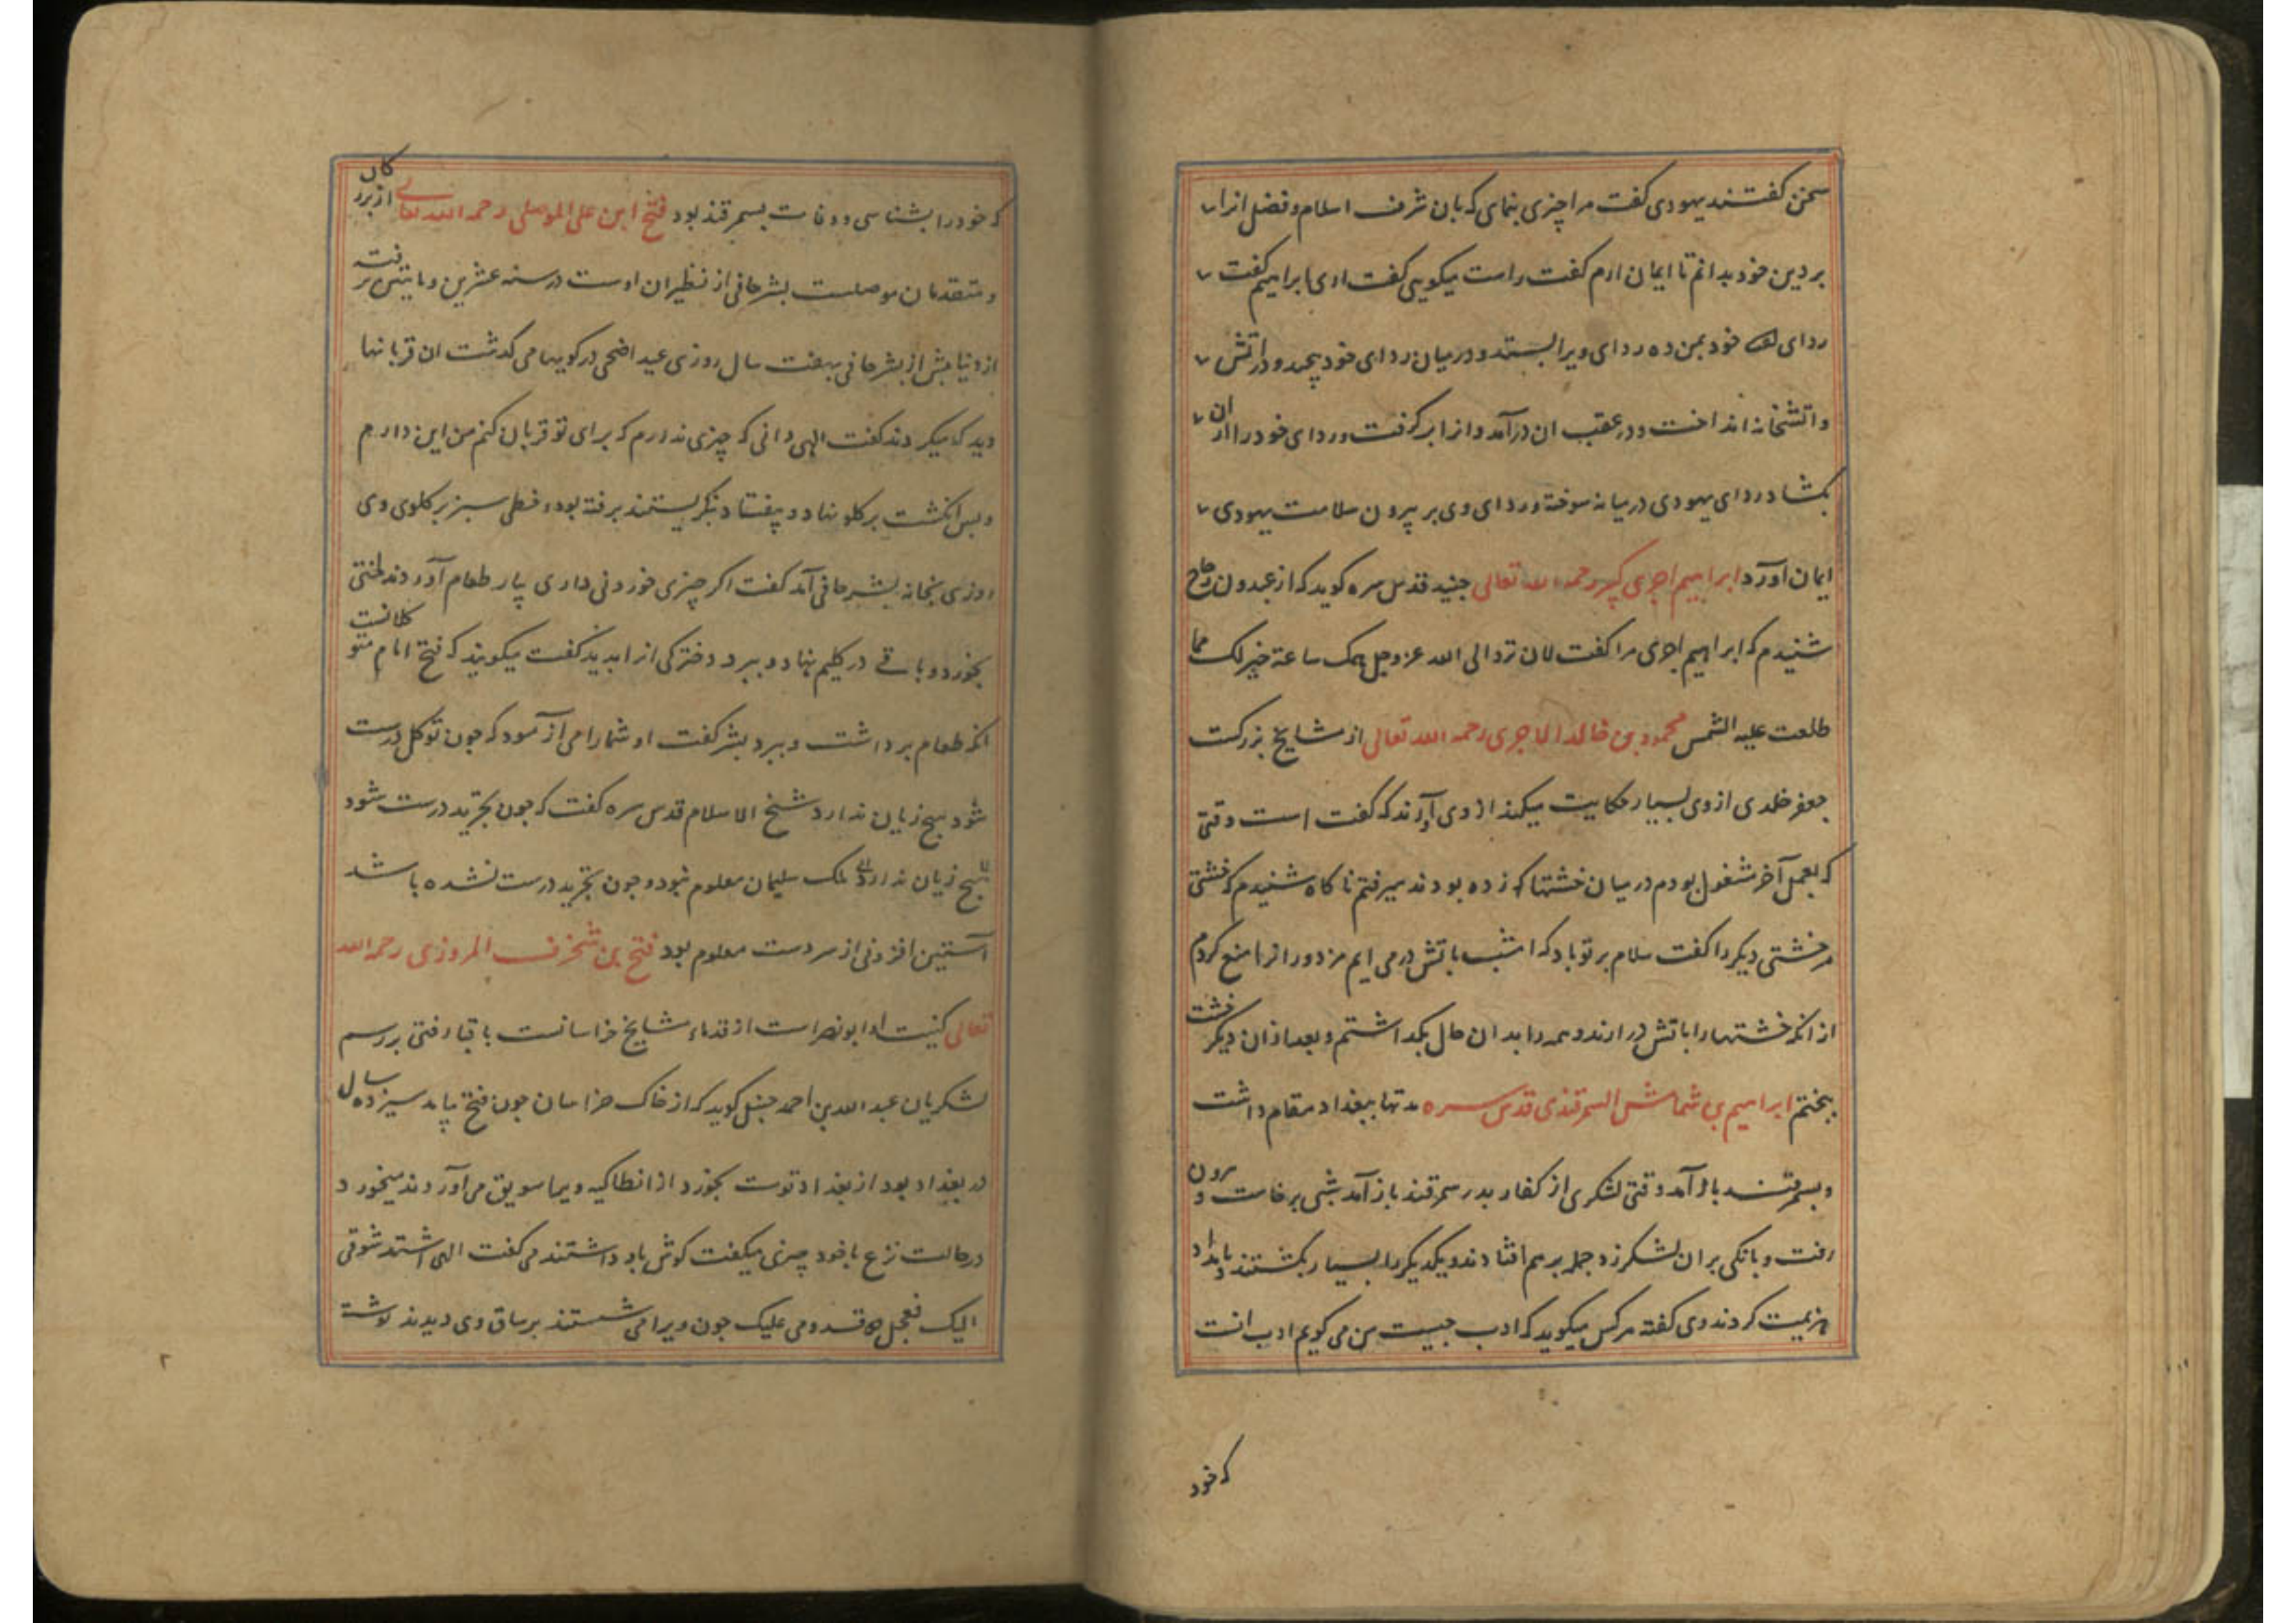 سخن گفتند یهودی گفت مرا چیزی بنمای که بان شرف اسلام و فضل انرا
بر دین خود بدانم تا ایمان ارم گفت راست میگویی گفت اری ابراهیم گفت
ردای خود بمن ده ردای ویرا بستد و در میان ردای خود پیچید و در اتش
و اتشخانه انداخت و در عقب ان درآمد و انرا بر گرفت و ردای خود را از ان
بکشاد ردای یهودی در میانه سوخته و ردای وی بر بیرون سلامت یهودی
ایمان اورد ابراهیم اجری کبیر رحمه الله تعالی جنید قدس سره کوید که از عبدون زجاج
شنیدم که ابراهیم اجری مرا گفت لان ترد الی الله عز و جل همک ساعة خیر لک مما
طلعت علیه الشمس محمود بن خالد الاجری رحمه الله تعالی از مشایخ بزرکست
جعفر خلدی از وی بسیار حکایت میکند از وی آرند که گفت است وقتی
که بعمل آخر مشغول بودم در میان خشتها که زده بودند میرفتم ناکاه شنیدم که خشتی
مر خشتی دیگر را گفت سلام بر تو باد که امشب باتش در می ایم مزدورانرا منع کردم
از انکه خشتها را باتش در ارند و همه را بدان حال بگذاشتم و بعد از ان دیگر خشت
نپختم ابراهیم بن شماس السمرقندی قدس سره مدتها ببغداد مقام داشت
و بسمرقند باز آمد وقتی لشکری از کفار بدر سمرقند باز آمد شبی برخاست و برون
رفت و بانکی بران لشکر زد جمله برهم افتادند و یکدیگر را بسیار بکشتند و بامداد
هزیمت کردند وی گفته هر کس میگوید که ادب چیست من می گویم ادب انست
که خود
که خود را بشناسی و وفات بسمرقند بود فتح ابن علی الموصلی رحمه الله تعالی از بزرکان
و متقدمان موصلست بشر حافی از نظیران اوست در سنه عشرین و مایتین برفته
از دنیا پیش از بشر حافی بهفت سال روزی عید اضحی در کویها می کذشت ان قربانها
دید که میکردند گفت الهی دانی که چیزی ندارم که برای تو قربان کنم من این دارم
و پس انکشت بر کلو نهاد و بیفتاد بنکریستند برفته بود و خطی سبز بر کلوی وی
روزی بخانه بشر حافی آمد گفت اکر چیزی خوردنی داری بیار طعام آوردند لختی
بخورد و باقی در کلیم نهاد و ببرد دخترکی انرا بدید گفت میگویند که فتح امام متوکلانست
انکه طعام برداشت و ببرد بشر گفت او شما را می ازمود که چون توکل درست
شود هیچ زیان ندارد شیخ الاسلام قدس سره گفت که چون تجرید درست شود
هیچ زیان ندارد ملک سلیمان معلوم نبود و چون تجرید درست نشده باشد
آستین افزونی از سر دست معلوم بود فتح بن شخرف المروزی رحمه الله
تعالی کنیت او ابونصر است از قدماء مشایخ خراسانست با قبا رفتی بر رسم
لشکریان عبد الله بن احمد حنبل کوید که از خاک خراسان چون فتح نیامد سیزده سال
در بغداد بود از بغداد قوت نخورد از انطاکیه ویرا سویق می آوردند میخورد
در حالت نزع با خود چیزی میگفت گوش باو داشتند می گفت الهی اشتد شوقی
الیک فعجل قدومی علیک چون ویرا می شستند بر ساق وی دیدند نوشته